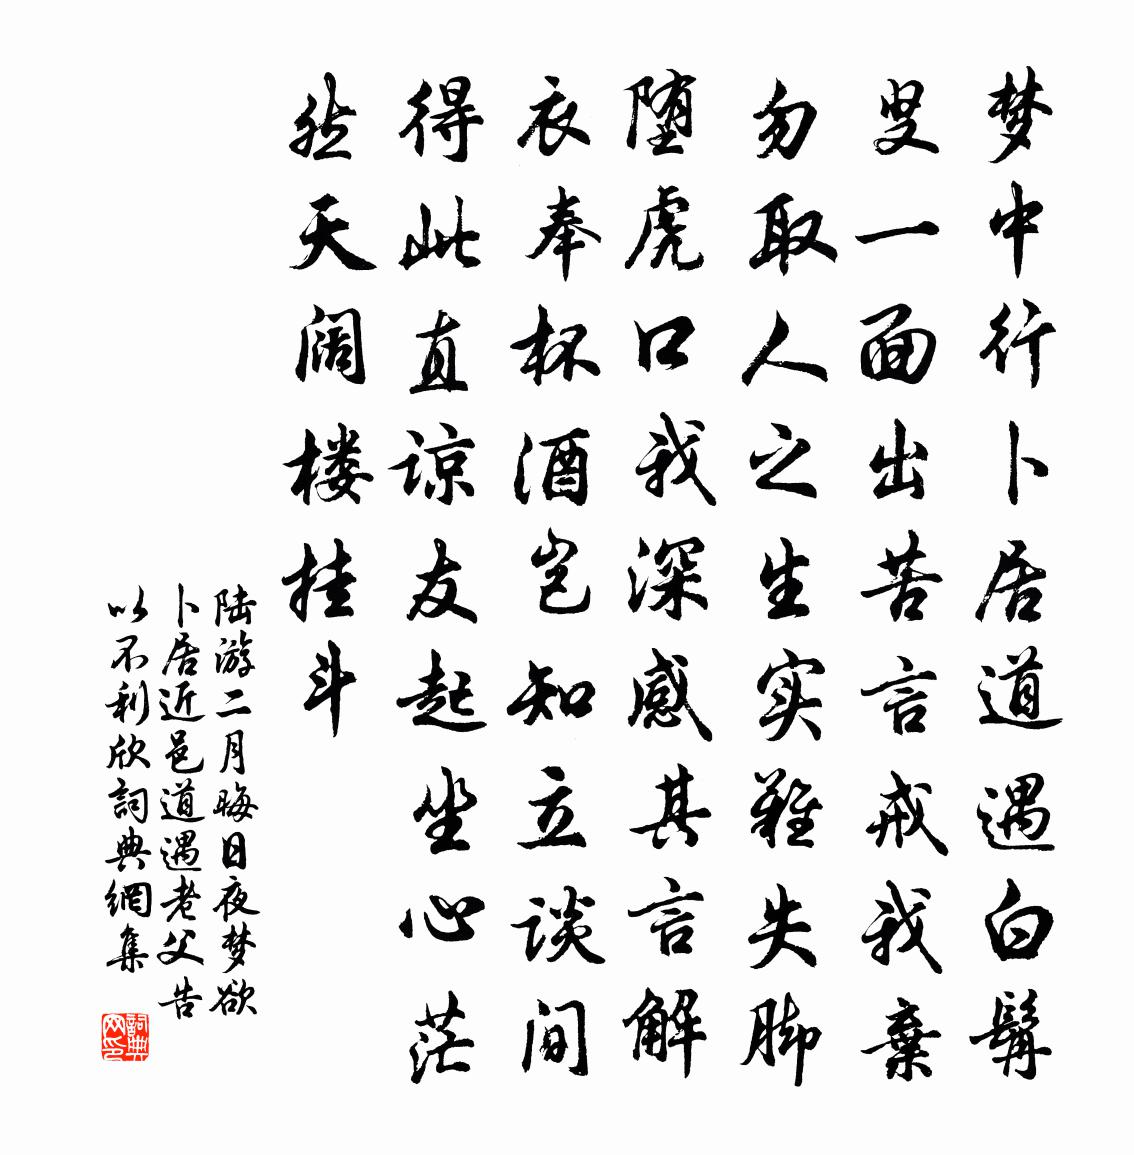 梦中行卜居道遇白髯
叟一面出苦言戒我弃
勿取人之生实难失脚
堕虎口我深感其言解
衣奉杯酒岂知立谈间
得此直谅友起坐心茫
然天阔楼挂斗
陆游二月晦日夜梦欲
卜居近邑道遇老父告
以不利欣詞典網集
詞典
网印